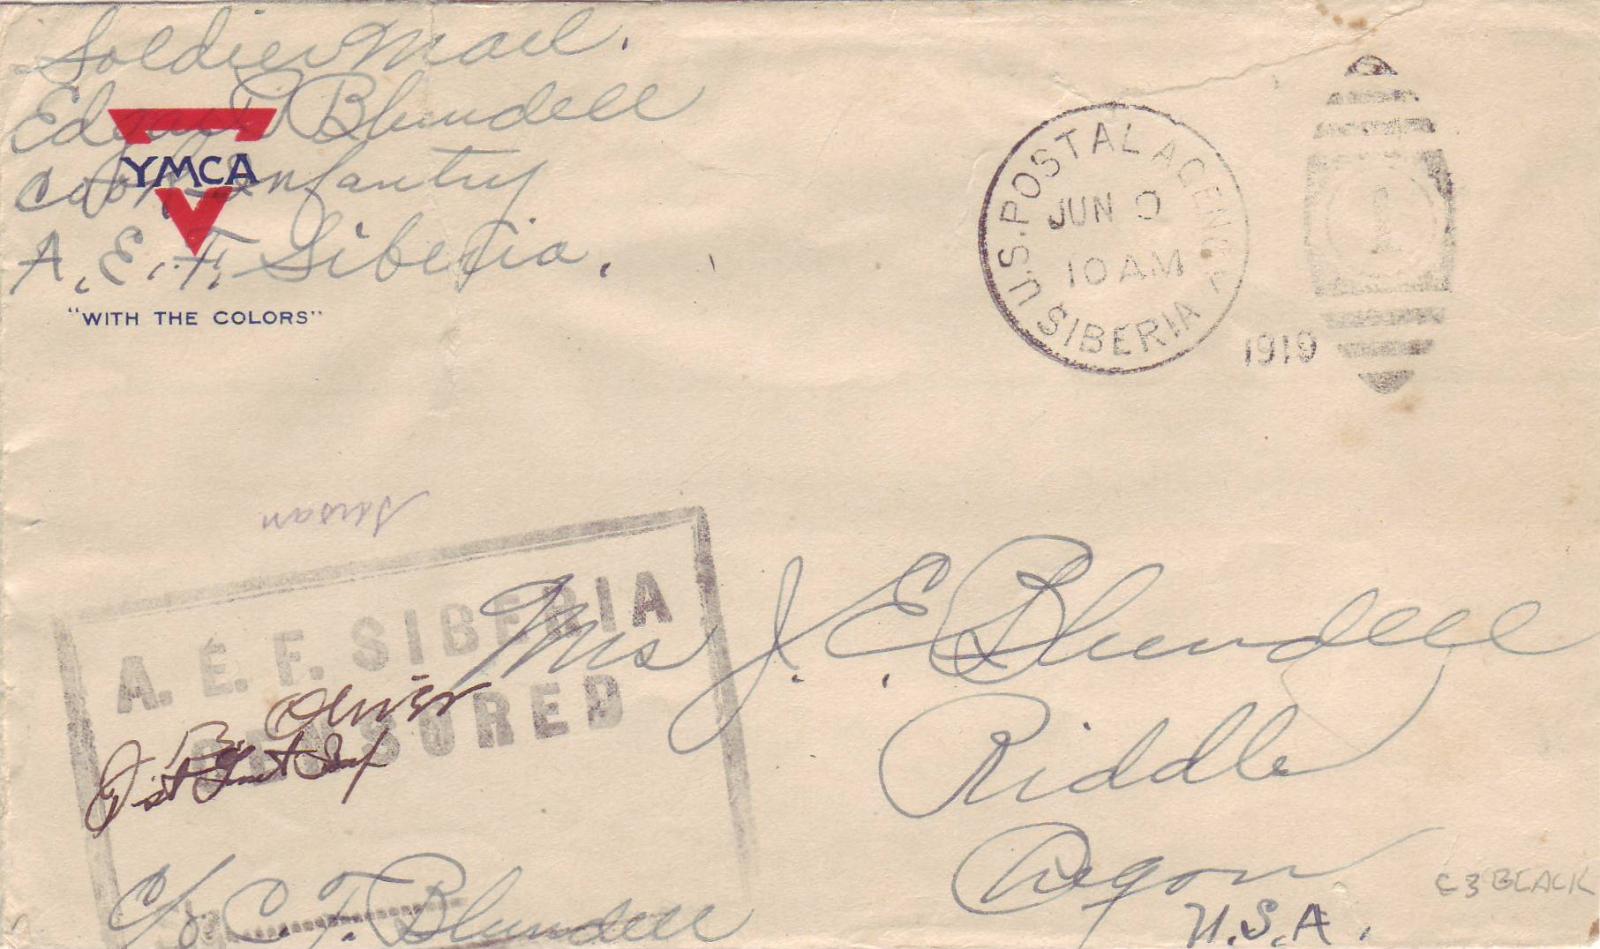 Soldier Mail.
Edgar Blundell
Infantry
A. E. F. Siberia.
YMCA
"WITH THE COLORS"
U.S. POSTAL AGENCY
SIBERIA
JUN
10 AM
1919
1
A. E. F. SIBERIA
CENSORED
Oliver
1st Lieut Inf
Mrs J. E. Blundell
Riddle
Oregon
U.S.A.
C/o C. F. Blundell
C3 BLACK